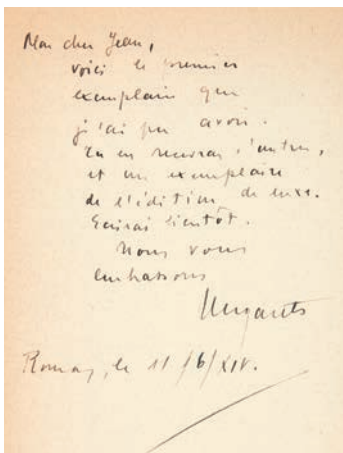 Mon cher Jean,
voici le premier
exemplaire que
j'ai pu avoir.
Tu en recevras l'autre,
et un exemplaire
de l'édition de luxe.
Ecrirai bientôt.
Nous vous
embrassons
Ungaretti
Roma, le 11/6/XIV.